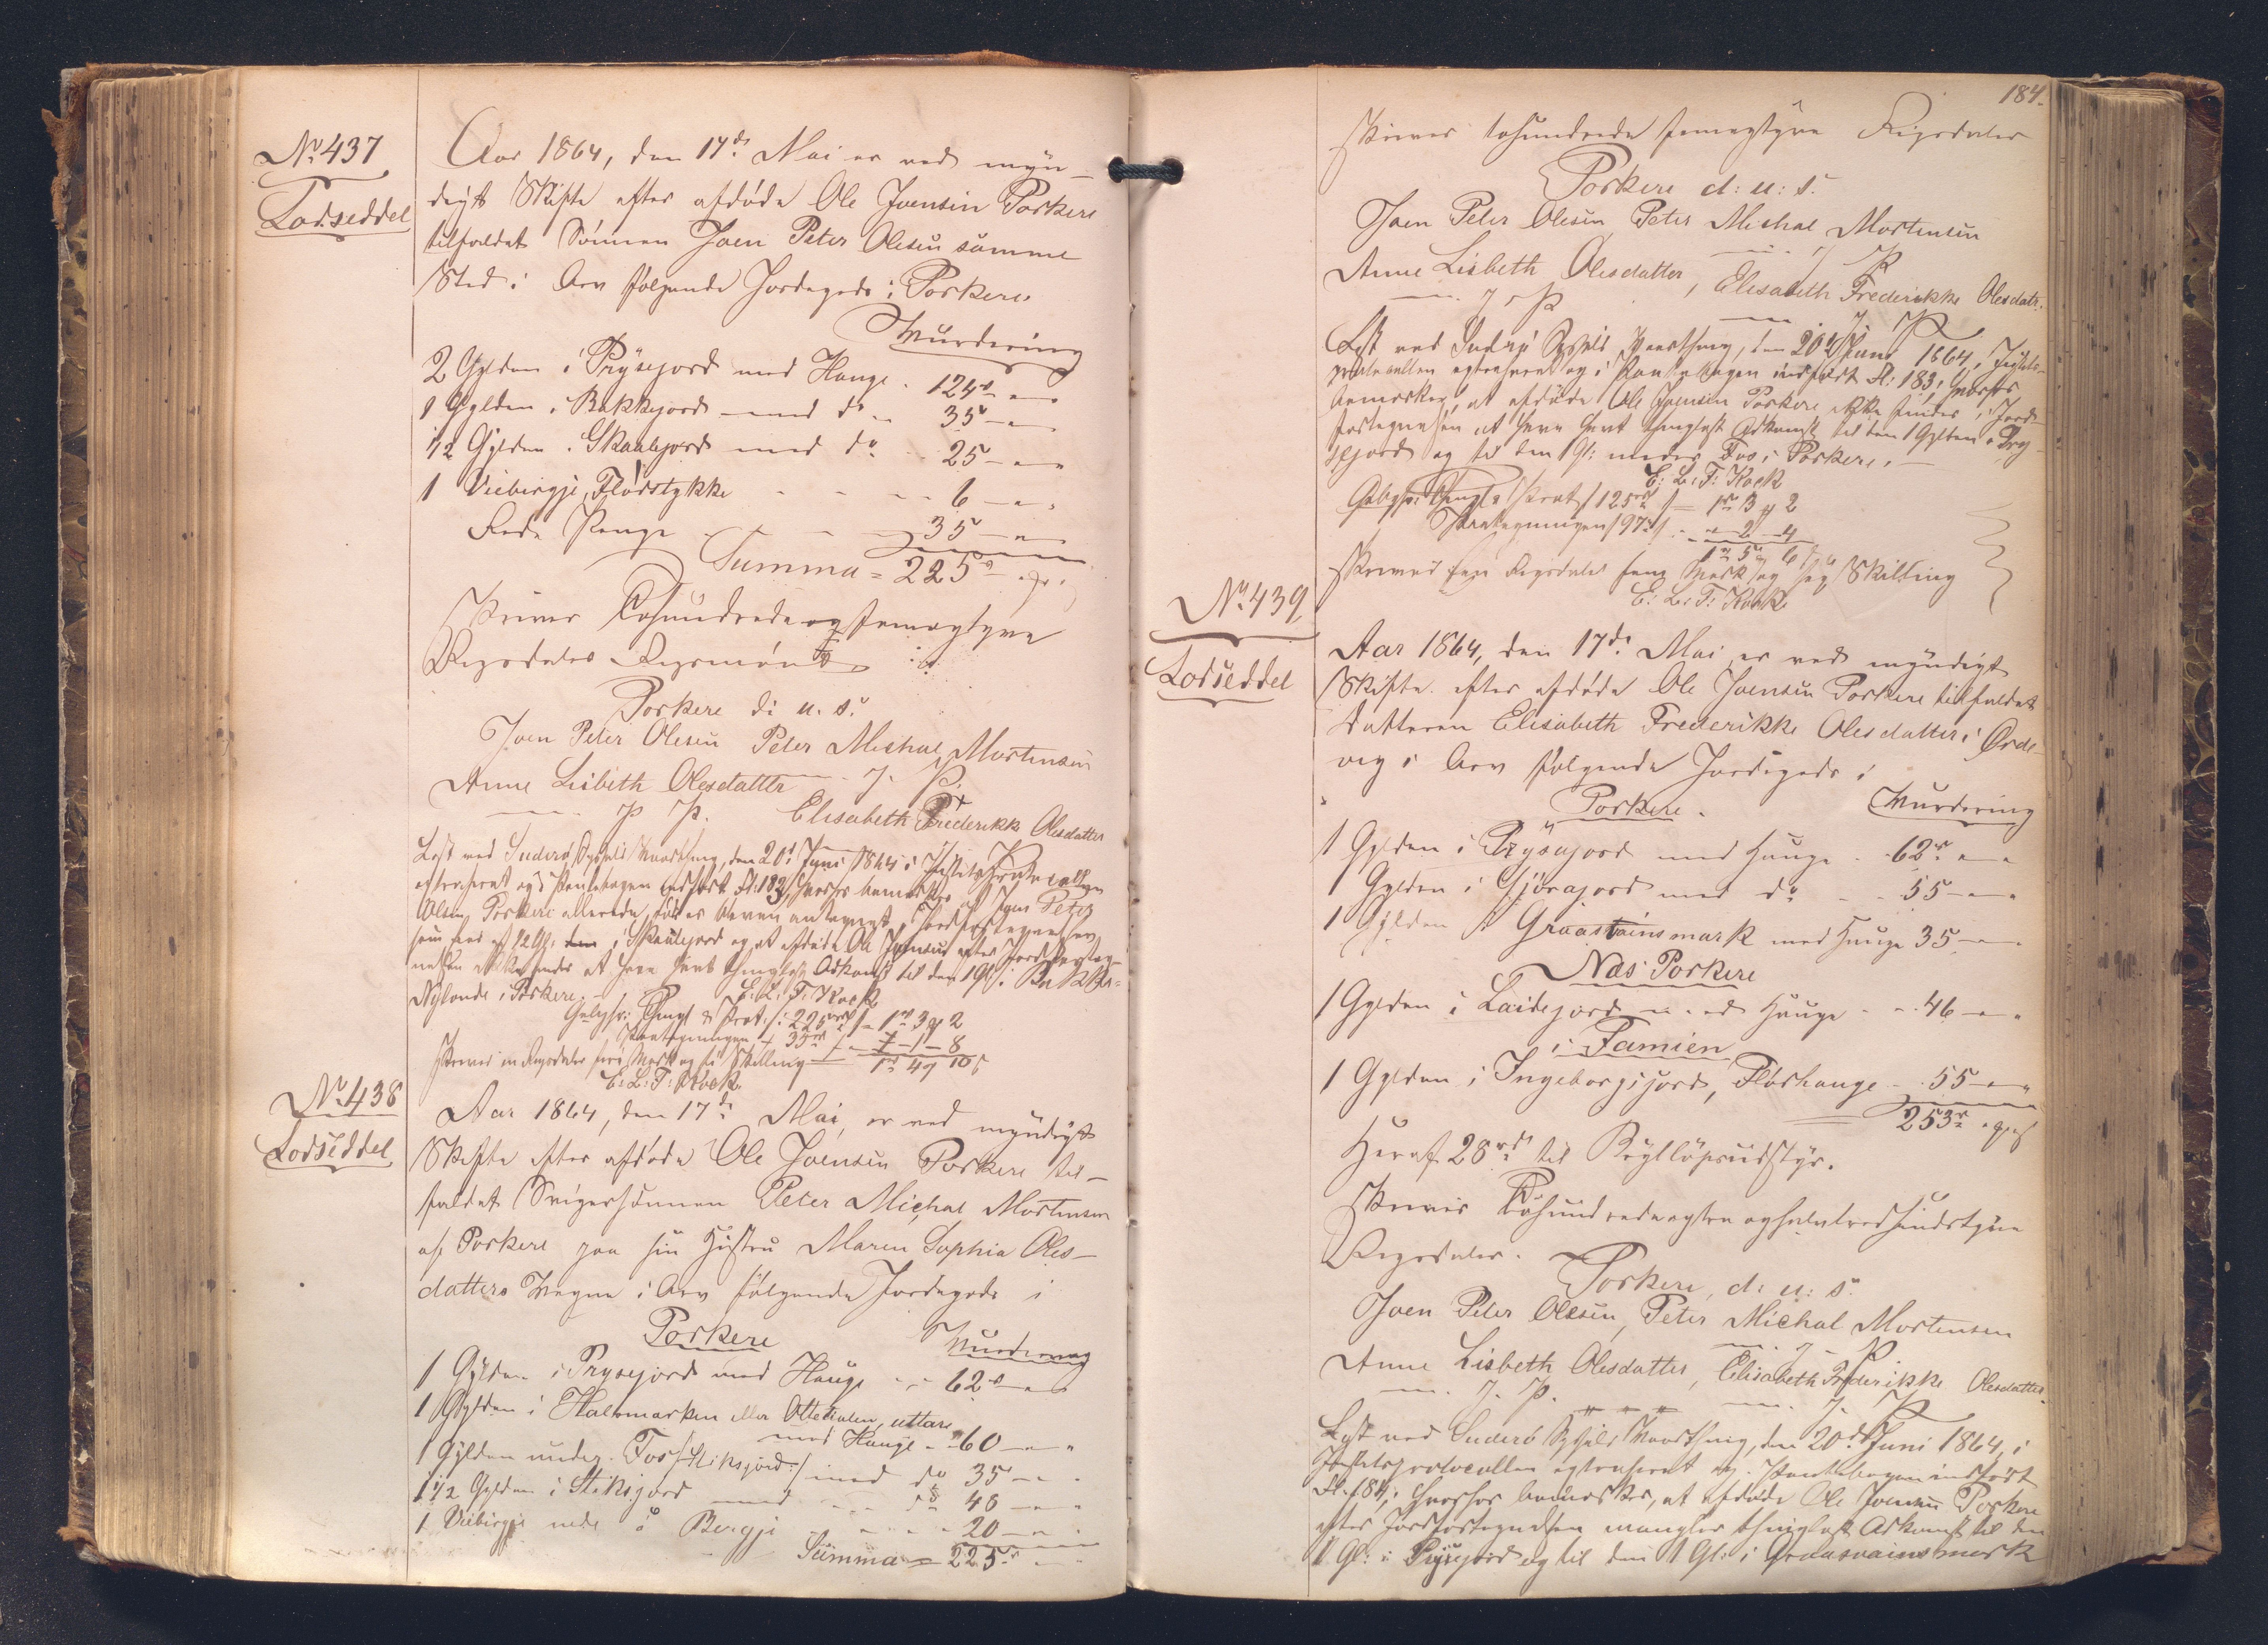 No 437
Lodseddel
Aar 1864, den 17de Mai er ved myn-
digt Skifte efter afdøde Ole Joensen Porkere
tilfaldet Sønnen Joen Peter Olesen samme
Sted i Arv følgende Jordegods i Porkere.
Wurdering
2 Gylden i Prysejord med Hauge . 124 rd " "
1 Gylden i Bakkejord med do " 35 - " "
1/2 Gylden i Skaalejord med do . 25 - " "
1 Viebirgje, Flørstykke - - - 6 - " "
Rede Penge - - - 35 - " "
Summa = 225 rd
skriver Tohundrede og femogtyve
Rigsdaler Rigsmønt
Porkere d: u. s.
Joen Peter Olesen Peter Michal Mortensen
Anne Lisbeth Olesdatter m. f. P.
m. f. P. Elisabeth Frederikke Olesdatter
Læst ved Suderø Syssels Vaarthing, den 20d Juni 1864 i Justitsprotocollen
extraheret og i Pantebogen indført Fl: 183, hvorhos bemærkes at Joen Peter
Olesen Porkere allerede før er bleven antegnet i Jordfortegnelsen
som Eier af 1/2 Gl: i Skaalejord og at afdøde Ole Joensen efter Jordforteg-
nelsen ikke findes at have havt thinglæst Adkomst til den 1 Gl: i Bakke-
Nylonde i Porkere.
E: L: T: Kock
Gebyhr: Thingl & Prot: /: 225 rd /: - 1 rd 3 # 2
Pantegningen + 35 rd /: - " - 1 - 8
skriver en Rigsdaler fire Mark og ti Skilling 1 rd 4 # 10 s
E: L: T: Kock.
No 438
Lodseddel
Aar 1864, den 17de Mai, er ved myndigt
Skifte efter afdøde Ole Joensen Porkere til-
faldet Svigersønnen Peter Michal Mortensen
af Porkere paa sin Hustru Maren Sophia Oles-
datters Vegne i Arv følgende Jordegods i
Porkere Wurdering
1 Gylden i Prysejord med Hauge - - 62 rd " "
1 Gylden i Halvmarken eller Ottetialen, uttare
med Hauge - " 60 - " "
1 Gylden under Fos /:Stiksjord:/ med do 35 - " "
1 1/2 Gylden i Stiksjord med - - do 48 - " "
1 Viebirgje nede å Bergji - - - 20 - " "
Summa = 225 rd " "
184.
skriver tohundrede femogtyve Rigsdaler
Porkere d: u: s.
Joen Peter Olesen Peter Michal Mortensen
m. f. P.
Anne Lisbeth Olesdatter, Elisabeth Frederikke Olesdatr.
m. f. P. m. f. P.
Læst ved Suderø Syssels Vaarthing, den 20d Juni 1864, i Justits-
protocollen extraheret og i Pantebogen indført Fl: 183; hvorhos
bemærkes, at afdøde Ole Joensen Porkere ikke findes i Jord-
fortegnelsen at have havt thinglæst Adkomst til den 1 Gylden i Pry-
sejord og til den 1 Gl: under Fos i Porkere.
E: L: T: Kock
Gebyhr: Thingl & Prot /125 rd / - 1 rd 3 # 2
Pantegningen /97 rd / - " 2 - 4
1 rd 5 # 6 s
skriver een Rigsdaler fem Mark og sex Skilling
E: L: T: Kock
No 439
Lodseddel
Aar 1864, den 17de Mai er ved myndigt
Skifte efter afdøde Ole Joensen Porkere tilfaldet
Datteren Elisabeth Frederikke Olesdatter iØrde-
vig i Arv følgende Jordegods i
Porkere. Wurdering
1 Gylden i Prysejord med Hauge - 62 rd " "
1 Gylden i Gjørajord med do - - 55 - " "
1 Gylden i Graasteinsmark med Hauge 35 - " "
Nas Porkere
1 Gylden i Laidejord med Hauge - - 46 - " "
i Famien
1 Gylden i Ingeborgsjord, Flørhauge - 55 - " "
253 rd
Heraf 28 rd til Brylløpsudstyr.
skriver Tohundrede og tre og halvtredsindstyve
Rigsdaler.
Porkere, d: u: s.
Joen Peter Olesen, Peter Michal Mortensen
m. f. P.
Anne Lisbeth Olesdatter, Elisabeth Frederikke Olesdatter.
m. f. P. m. f. P.
Læst ved Suderø Syssels Vaarthing, den 20d Juni 1864, i
Justitsprotocollen extraheret og i Pantebogen indført
Fl: 184; hvorhos bemærkes, at afdøde Ole Joensen Porkere
efter Jordfortegnelsen mangler thinglæst Adkomst til den
1 Gl: i Prysejord og til den 1 Gl: i Graasvainsmark